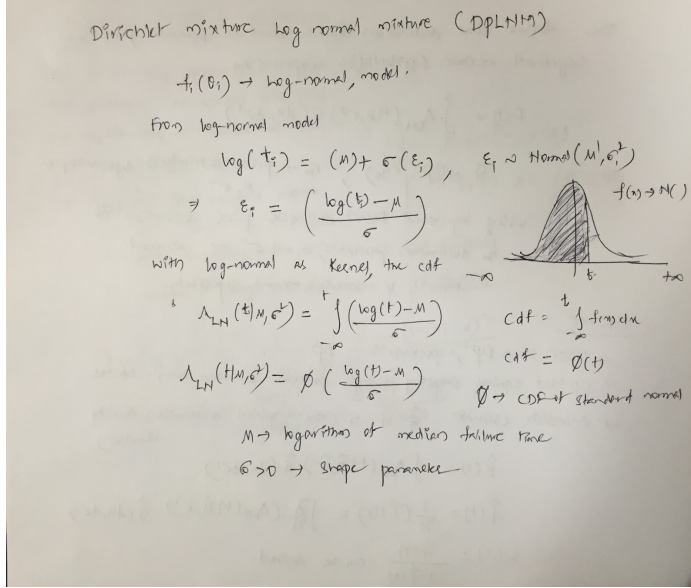 Dirichlet mixture Log normal mixture (DPLNM)
f_i(θ_i) → Log-normal, model.
From log-normal model
log(t_i) = (μ) + σ(ε_i), ε_i ~ Normal(μ', σ_i²)
⇒ ε_i = (log(t_i) - μ / σ)
f(x) → N( )
with log-normal as Kernel, the cdf
-∞ t +∞
Λ_LN(t|μ,σ²) = ∫_{-∞}^{t} (log(t) - μ / σ)
cdf = ∫_{-∞}^{t} f(x) dx
Λ_LN(t|μ,σ²) = Ø(log(t) - μ / σ)
cdf = Ø(t)
Ø → CDF of standard normal
μ → logarithm of median failure time
σ>0 → shape parameter